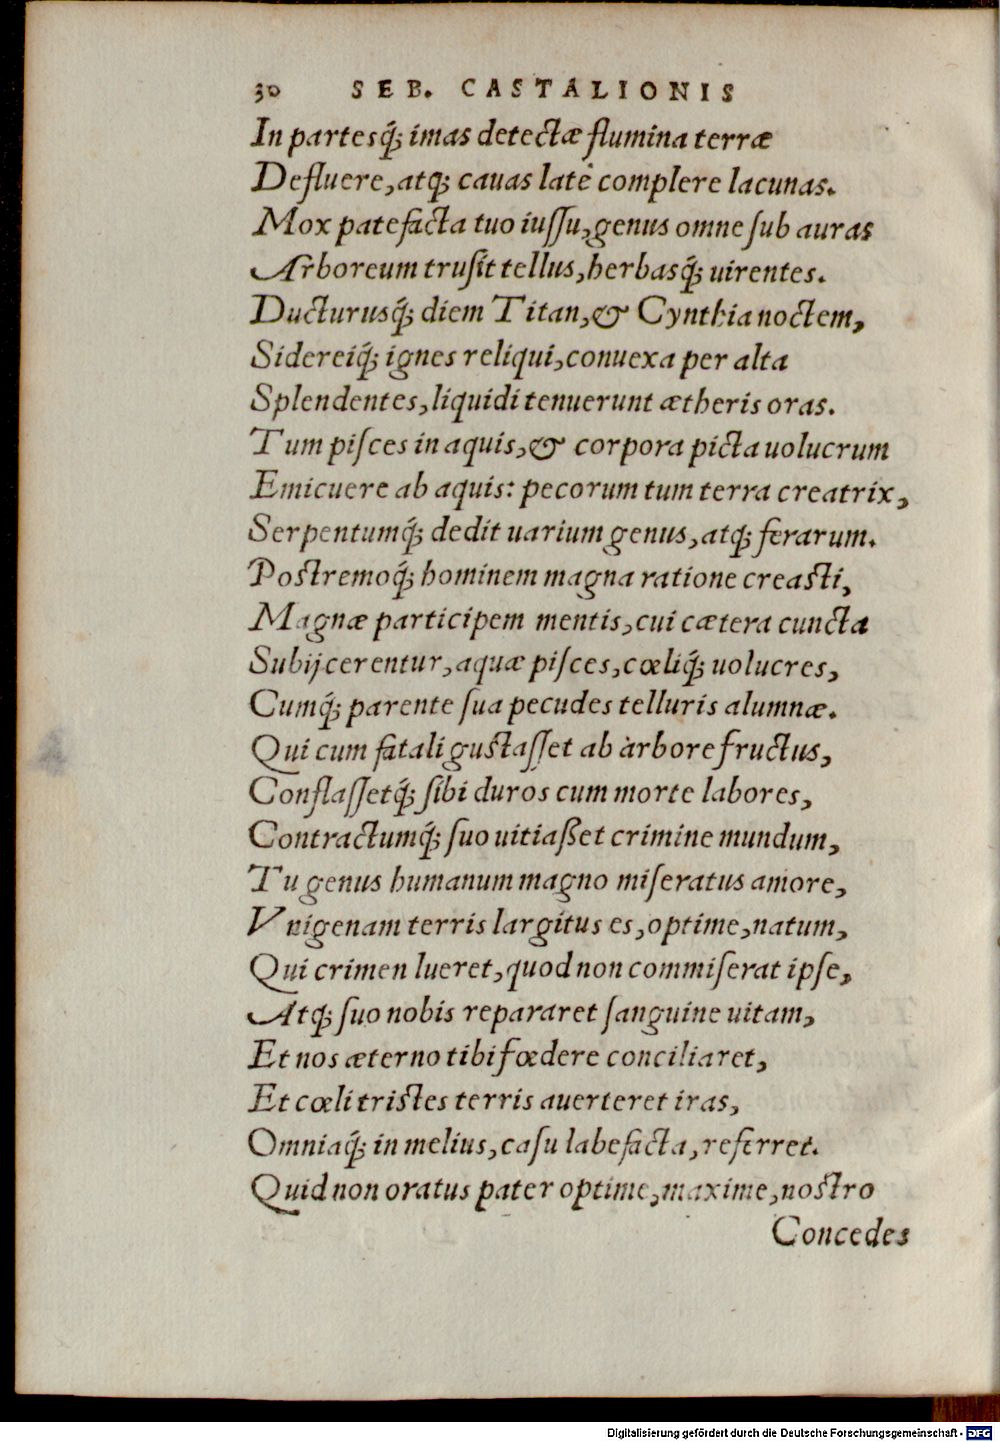 30 SEB. CASTALIONIS
In partesq́; imas detectæ flumina terræ
Defluere, atq; cauas latè complere lacunas.
Mox patefacta tuo iuſſu, genus omne ſub auras
Arboreum truſit tellus, herbasq́; uirentes.
Ducturusq́; diem Titan, & Cynthia noctem,
Sidereiq́; ignes reliqui, conuexa per alta
Splendentes, liquidi tenuerunt ætheris oras.
Tum piſces in aquis, & corpora picta uolucrum
Emicuere ab aquis: pecorum tum terra creatrix,
Serpentumq́; dedit uarium genus, atq; ferarum.
Poſtremoq́; hominem magna ratione creaſti,
Magnæ participem mentis, cui cætera cuncta
Subijcerentur, aquæ piſces, cœliq́; uolucres,
Cumq́; parente ſua pecudes telluris alumnæ.
Qui cum fatali guſtaſſet ab àrbore fructus,
Conflaſſetq́; ſibi duros cum morte labores,
Contractumq́; ſuo uitiaßet crimine mundum,
Tu genus humanum magno miſeratus amore,
Vnigenam terris largitus es, optime, natum,
Qui crimen lueret, quod non commiſerat ipſe,
Atq; ſuo nobis repararet ſanguine uitam,
Et nos æterno tibi fœdere conciliaret,
Et cœli triſtes terris auerteret iras,
Omniaq́; in melius, caſu labefacta, referret.
Quid non oratus pater optime, maxime, noſtro
Concedes
Digitalisierung gefördert durch die Deutsche Forschungsgemeinschaft - DFG